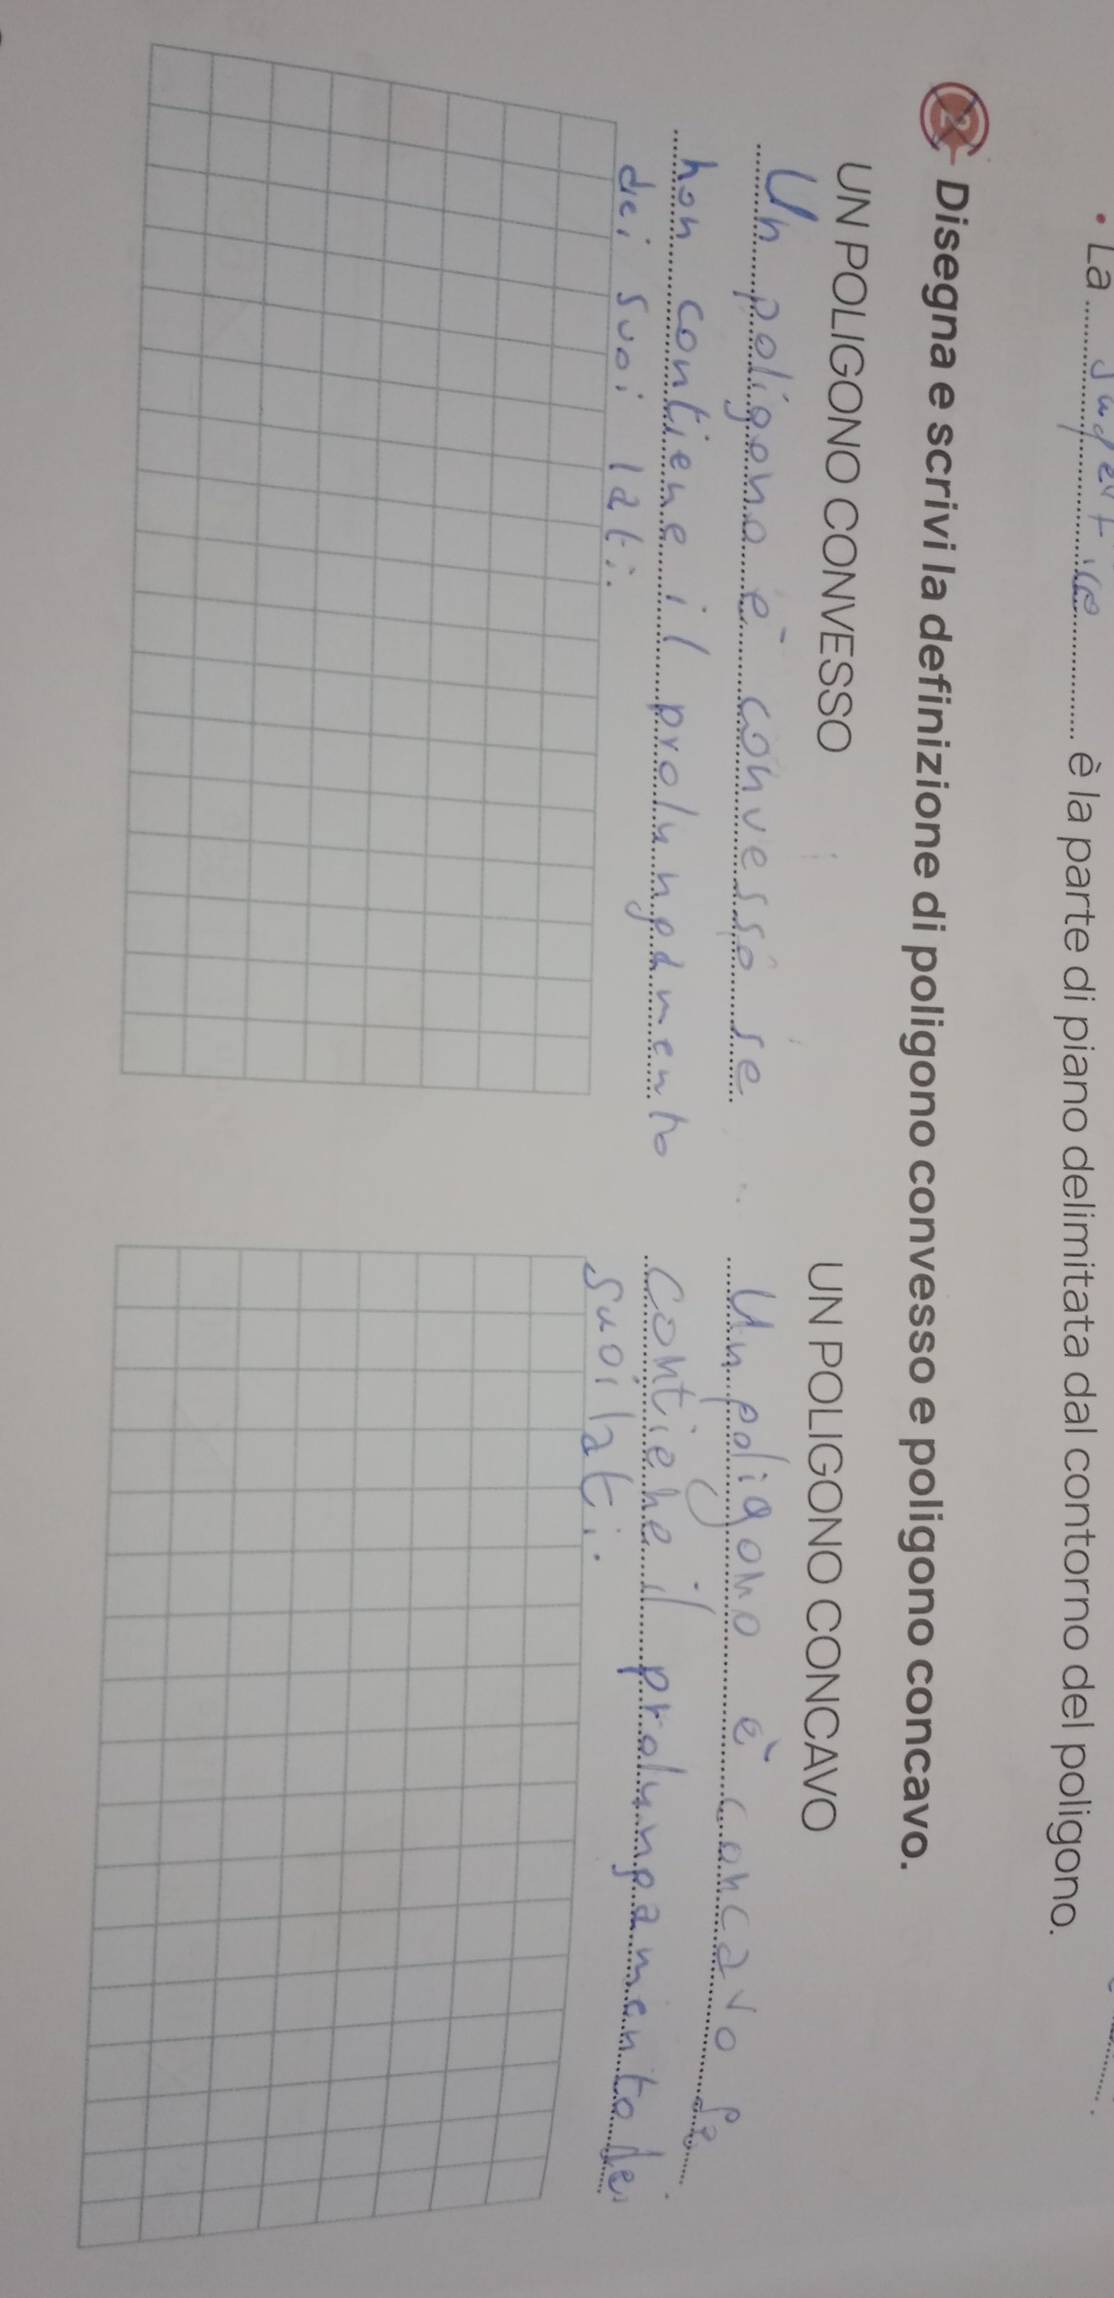 • La superficie è la parte di piano delimitata dal contorno del poligono.
2 Disegna e scrivi la definizione di poligono convesso e poligono concavo.
UN POLIGONO CONVESSO
Un poligono è convesso se
non contiene il prolungamento
dei suoi lati.
UN POLIGONO CONCAVO
Un poligono è concavo se
contiene il prolungamento dei
suoi lati.